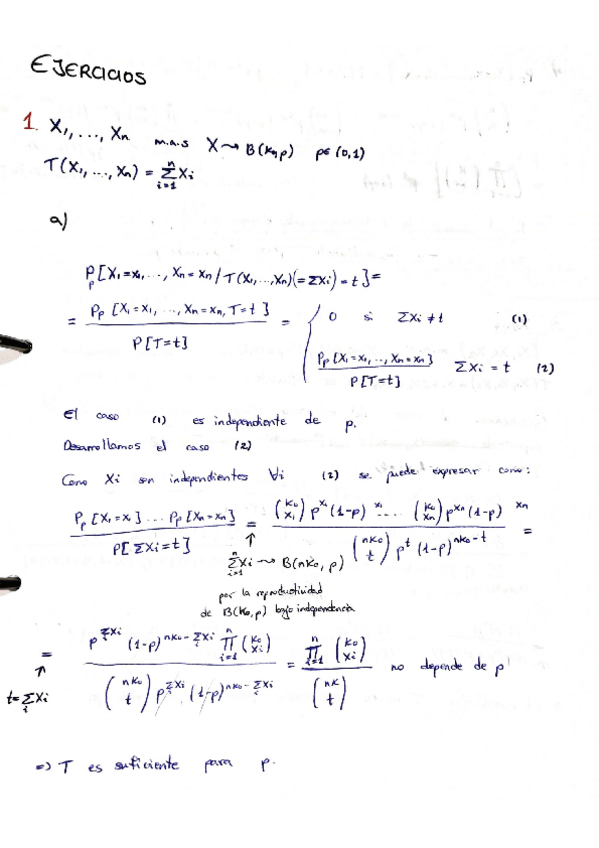 EJERCICIOS
1. X₁, ..., Xₙ m.a.s X ⇝ B(k₀,p) p∈(0,1)
T(X₁, ..., Xₙ) = Σᵢ₌₁ⁿ Xᵢ
a)
Pₚ[X₁=x₁, ..., Xₙ=xₙ / T(X₁,...,Xₙ)(=ΣXᵢ)=t] =
= Pₚ[X₁=x₁, ..., Xₙ=xₙ, T=t] / P[T=t] = { 0 si ΣXᵢ≠t (1)
Pₚ[X₁=x₁, .., Xₙ=xₙ] / P[T=t] ΣXᵢ=t (2)
El caso (1) es independiente de p.
Desarrollamos el caso (2)
Como Xᵢ son independientes ∀i (2) se puede expresar como:
Pₚ[X₁=x₁]...Pₚ[Xₙ=xₙ] / P[ΣXᵢ=t] = (k₀ x₁) p^x₁ (1-p)^x₁ .... (k₀ xₙ) p^xₙ (1-p)^xₙ / (nk₀ t) p^t (1-p)^(nk₀-t) =
↑
Σᵢ₌₁ⁿ Xᵢ ⇝ B(nk₀, p)
por la reproductividad
de B(k₀,p) bajo independencia
= p^(Σᵢxᵢ) (1-p)^(nk₀-Σᵢxᵢ) ∏ᵢ₌₁ⁿ (k₀ xᵢ) / (nk₀ t) p^(Σᵢxᵢ) (1-p)^(nk₀-Σᵢxᵢ) = ∏ᵢ₌₁ⁿ (k₀ xᵢ) / (nk t) no depende de p
↑
t=Σᵢxᵢ
=> T es suficiente para p.